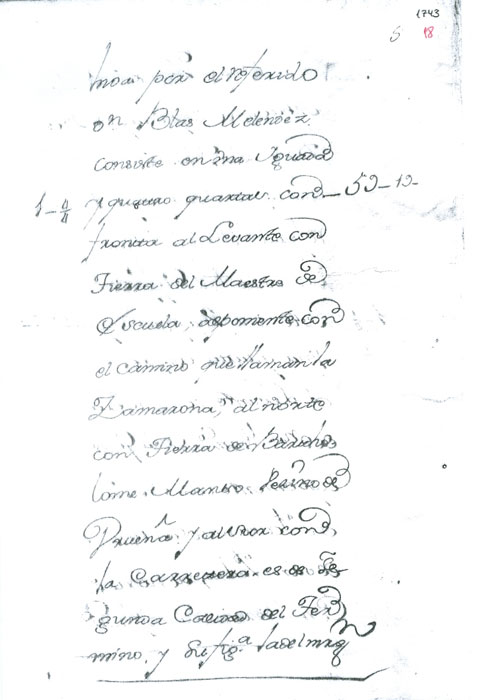 1743
5 18
por el referido
on Blas Melendez
Consiste en una Yguada
y quatro quartas con
fronta al Levante con
Tierra del Maestro de
Escuela, al poniente con
el camino que llaman la
Zamarrona, al norte
con Tierra de Bartho
lome Manso Vezino de
y al sur con
la Carretera es de Se
gunda Calidad del Ter
mino, y su fig.ª la del mrg